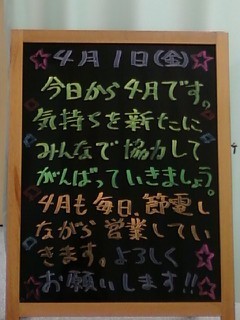 4月1日(金)
今日から4月です。
気持ちを新たに
みんなで協力して
がんばっていきましょう。
4月も毎日、節電し
ながら営業してい
きます。よろしく
お願いします!!